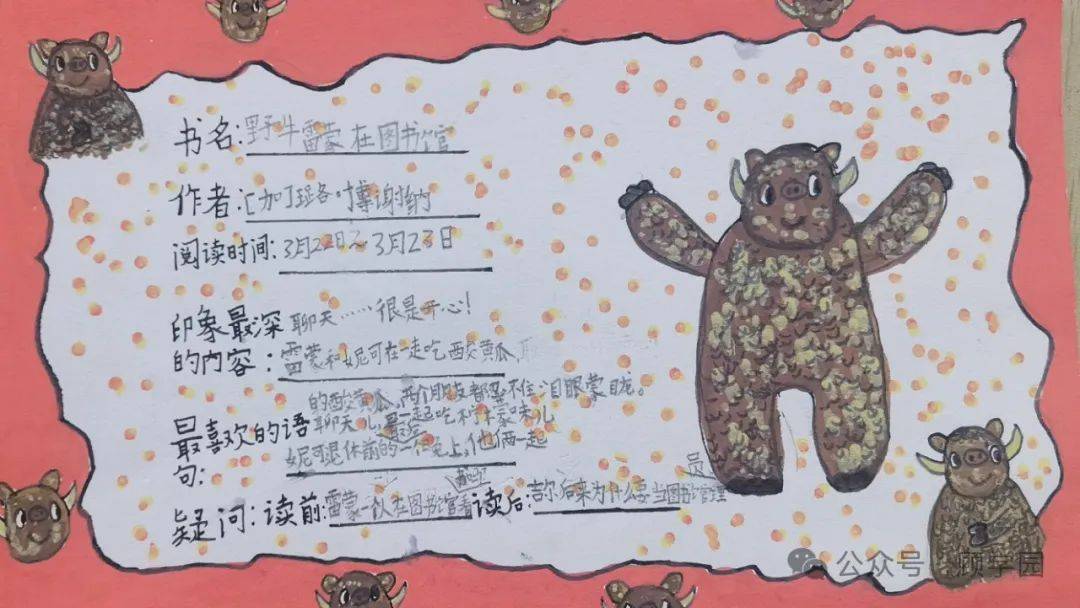 书名:野牛雷蒙在图书馆
作者:[加]班各·博谢纳
阅读时间:3月22日~3月23日
聊天……很是开心!
印象最深
的内容:雷蒙和妮可在一走吃酸黄瓜、
的酸黄瓜,两个朋友都忍不住泪眼蒙眬。
最喜欢的语聊天儿,最后一起吃柠檬味儿
句:妮可退休前的一个晚上,他俩一起
疑问:读前:雷蒙一次在图书馆看
读后:吉尔后来为什么要当图书管理
员
公众号 顾学园